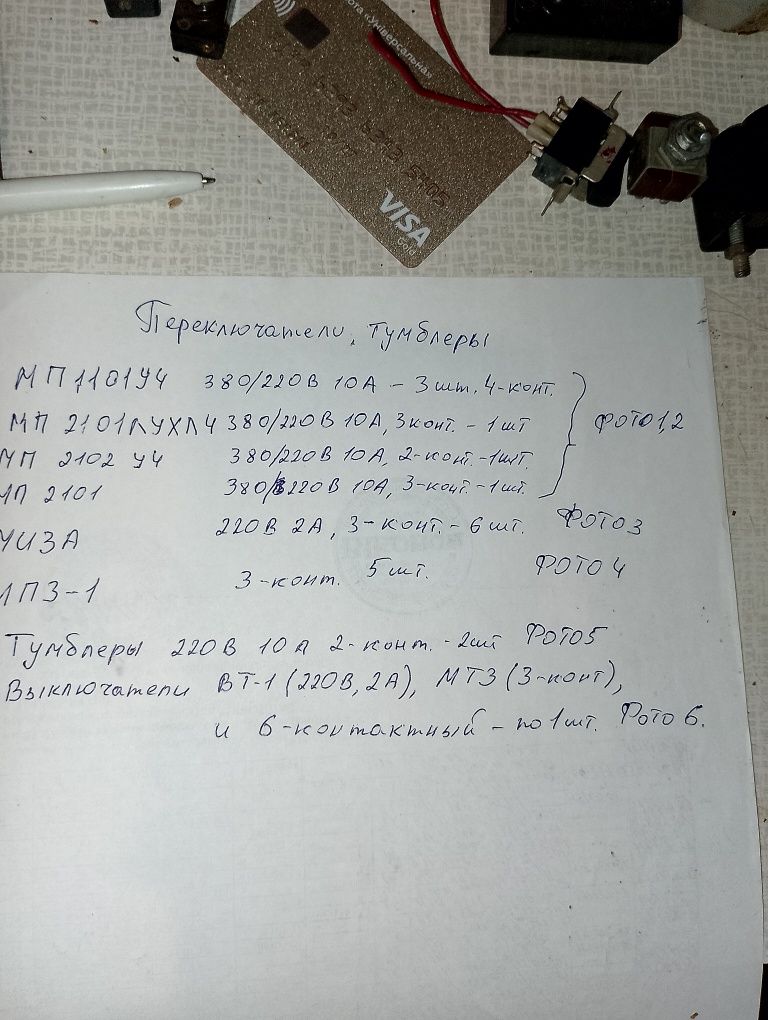 «Універсальна»
VISA
Gold
Переключатели, тумблеры
МП1101У4 380/220В 10А – 3шт. 4-конт.
МП 2101ЛУХЛ4 380/220В 10А, 3конт. – 1шт
МП 2102 У4 380/220В 10А, 2-конт. -1шт.
МП 2101 380/220В 10А, 3-конт. -1шт.
фото1,2
ЧИЗА 220В 2А, 3-конт. – 6шт. Фото3
МПЗ-1 3-конт. 5шт. Фото 4
Тумблеры 220В 10А 2-конт. - 2шт Фото5
Выключатели ВТ-1 (220В, 2А), МТЗ (3-конт),
и 6-контактный – по 1шт. Фото 6.